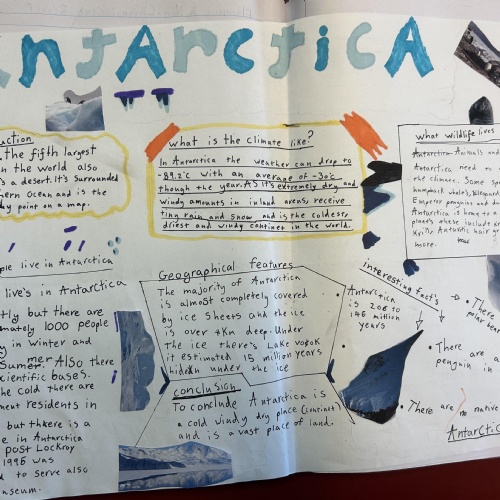 AntArcticA
uction
the fifth largest
n the world also
s a desert. It's surrounded
hern Ocean and is the
dy point on a map.
What is the climate like?
In Antarctica the weather can drop to
-89.2°C with an average of -30°C
though the year. AS it's extremely dry and
windy amounts in inland areas, receive
tiny rain and snow and is the coldest,
driest and windy continet in the world.
What wildlife lives
Antarctica Animals and
Antarctica need to
the climate. Some sp
humpback whale's,
Emperor penguins and
Antarctica is home to
plants these include
Krill, Antarctic hair gr
more.
ple live in Antarctica
live's in Antarctica
ntly but there are
mately 1000 people
y in Winter and
Sumer. Also there
cientific bases.
the cold there are
nent residents in
but there is a
e in Antarctica
Post Lockroy
1996 was
d to serve also
useum.
Geographical features
The majority of Antarctica
is almost completely covered
by ice sheets and the ice
is over 4km deep. Under
The ice there's Lake Vostok
it estimated 15 million years
hidden under the ice
conclusion
To conclude Antarctica is
a cold windy dry place
and is a vast place of land.
interesting fact's
Antarctica
is 200 to
146 million
years
There
polar bear
There are
penguin in
There are native
Antarctic